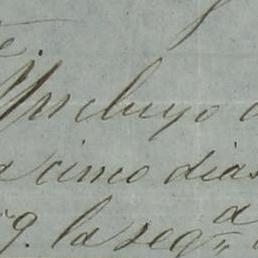 Yncluyo
a cinco dias
9. la segª